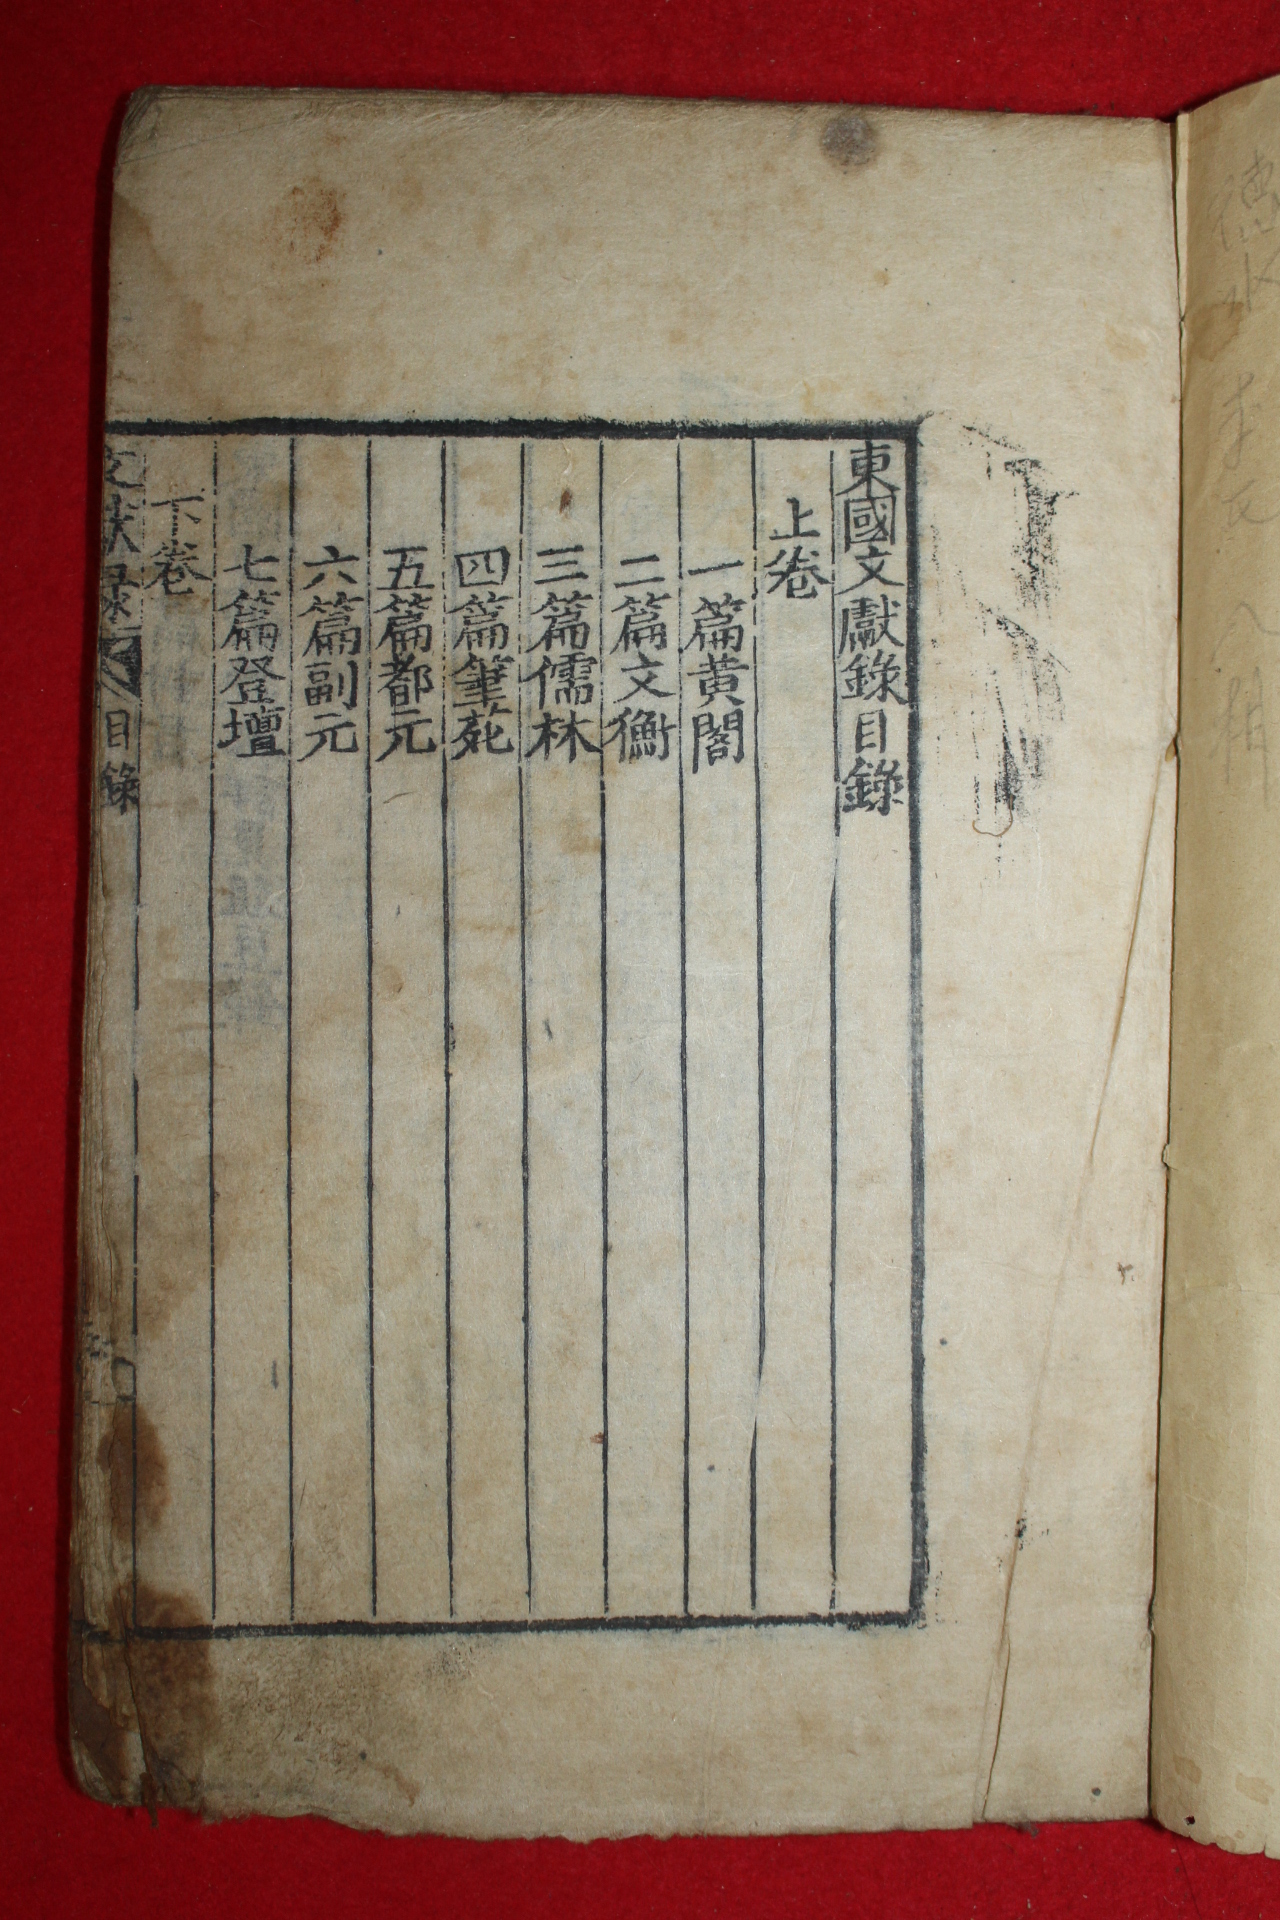 東國文獻錄目錄
上卷
一篇黄閣
二篇文衡
三篇儒林
四篇筆苑
五篇都元
六篇副元
七篇登壇
下卷
文献录 目錄